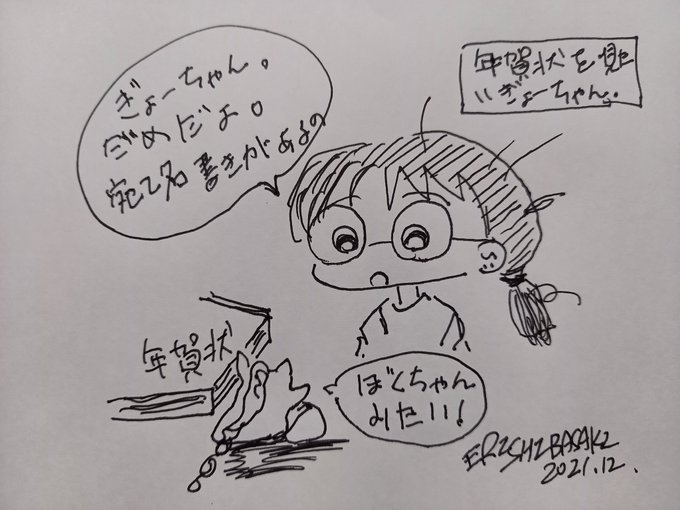 年賀状を見た
いぎょーちゃん。
ぎょーちゃん。
だめだよ。
宛て名書きがあるの
年賀状
ぼくちゃん
みたい!
ERI SHIBASAKI
2021.12.